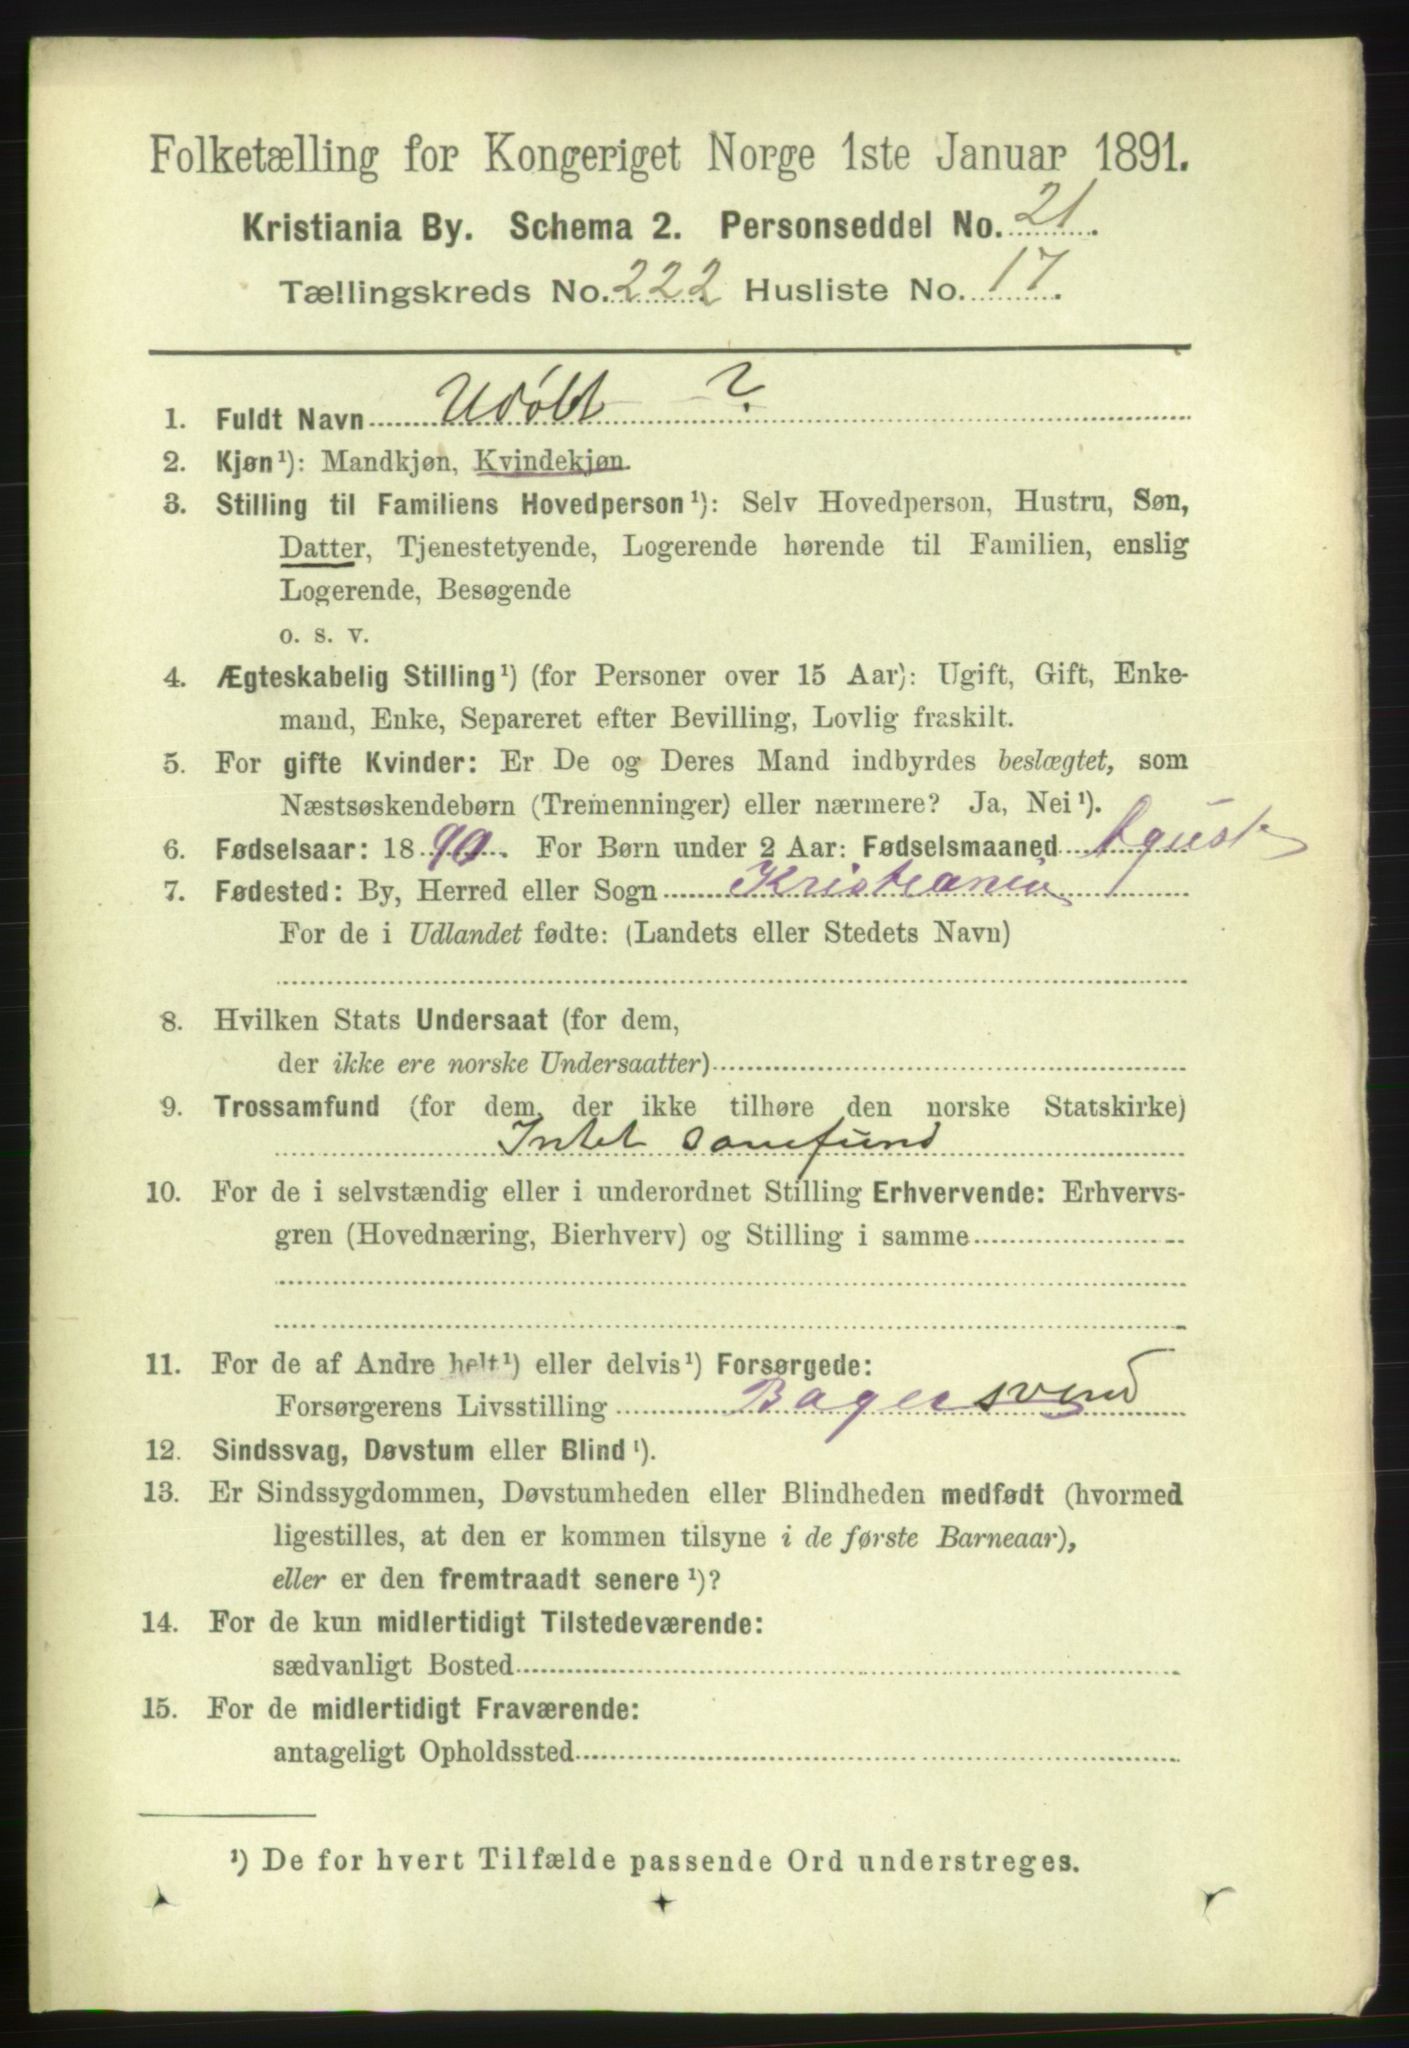 Folketælling for Kongeriget Norge 1ste Januar 1891.
Kristiania By. Schema 2. Personseddel No. 21.
Tællingskreds No. 222 Husliste No. 17.
1. Fuldt Navn Udøbt - ?
2. Kjøn¹): Mandkjøn, Kvindekjøn.
3. Stilling til Familiens Hovedperson¹): Selv Hovedperson, Hustru, Søn,
Datter, Tjenestetyende, Logerende hørende til Familien, enslig
Logerende, Besøgende
o. s. v.
4. Ægteskabelig Stilling¹) (for Personer over 15 Aar): Ugift, Gift, Enke-
mand, Enke, Separeret efter Bevilling, Lovlig fraskilt.
5. For gifte Kvinder: Er De og Deres Mand indbyrdes beslægtet, som
Næstsøskendebørn (Tremenninger) eller nærmere? Ja, Nei¹).
6. Fødselsaar: 1890. For Børn under 2 Aar: Fødselsmaaned Agust
7. Fødested: By, Herred eller Sogn Kristiania
For de i Udlandet fødte: (Landets eller Stedets Navn)
8. Hvilken Stats Undersaat (for dem,
der ikke ere norske Undersaatter)
9. Trossamfund (for dem, der ikke tilhøre den norske Statskirke)
Intet samfund
10. For de i selvstændig eller i underordnet Stilling Erhvervende: Erhvervs-
gren (Hovednæring, Bierhverv) og Stilling i samme
11. For de af Andre helt¹) eller delvis¹) Forsørgede:
Forsørgerens Livsstilling Bagersvend
12. Sindssvag, Døvstum eller Blind¹).
13. Er Sindssygdommen, Døvstumheden eller Blindheden medfødt (hvormed
ligestilles, at den er kommen tilsyne i de første Barneaar),
eller er den fremtraadt senere¹)?
14. For de kun midlertidigt Tilstedeværende:
sædvanligt Bosted
15. For de midlertidigt Fraværende:
antageligt Opholdssted
¹) De for hvert Tilfælde passende Ord understreges.